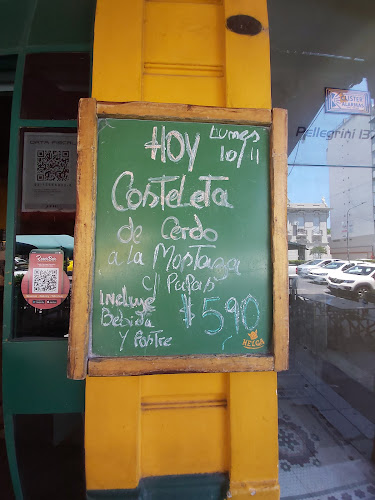 Hoy
Lunes
10/11
Costeleta
de Cerdo
a la Mostaza
c/ Papas
Incluye
Bebida
y Postre
$590
NECGA
DATA FISCAL
Pellegrini B